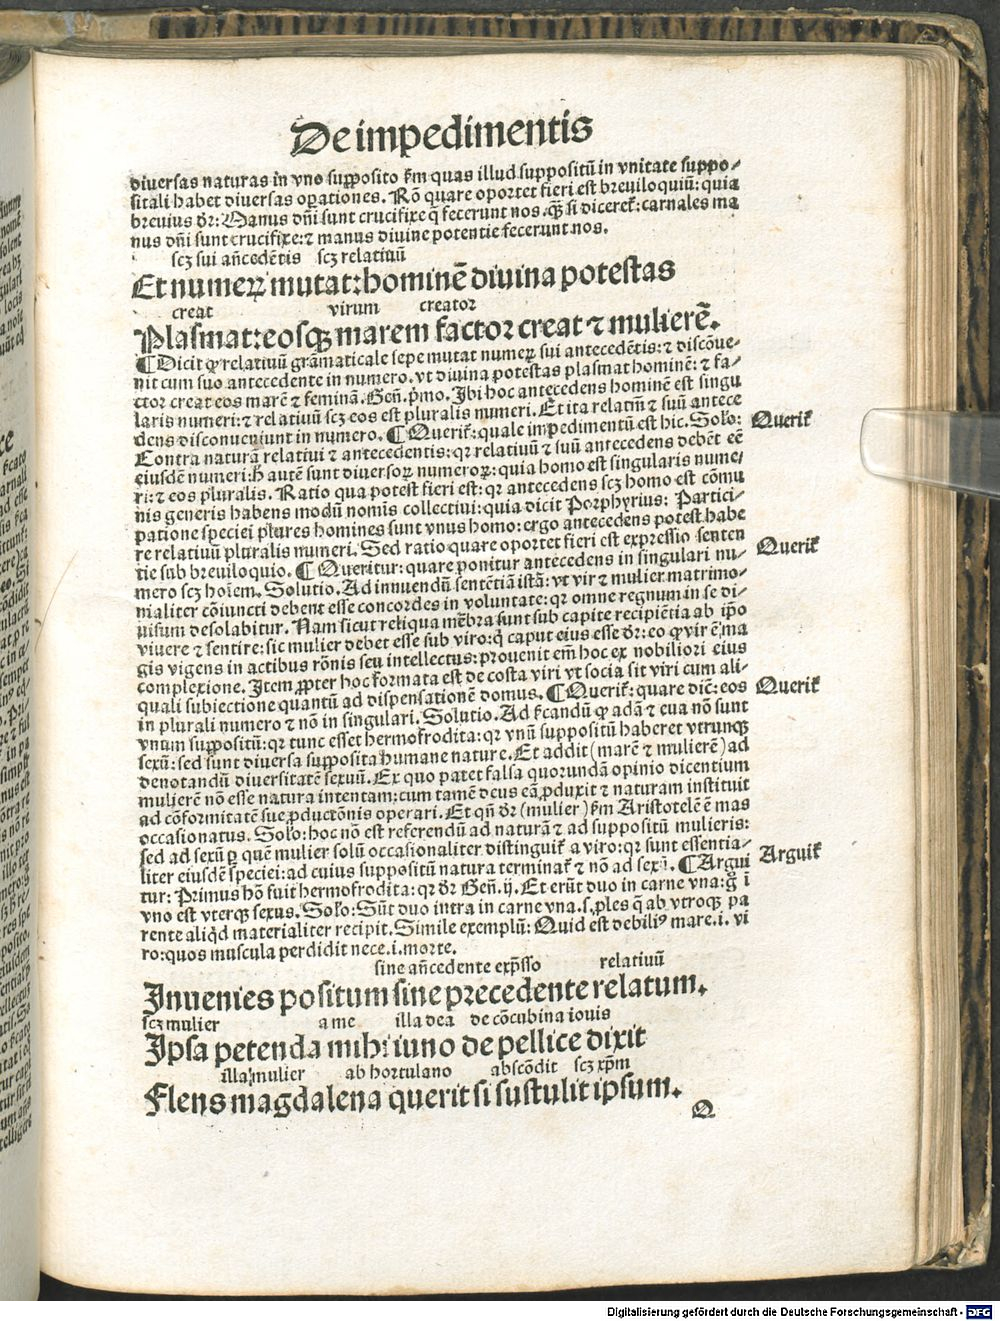 De impedimentis
diuersas naturas in vno supposito ẜm quas illud suppositū in vnitate suppo-
sitali habet diuersas oꝑationes. Rō quare oportet fieri est breuiloquiū: quia
breuius dr̄: Manus dn̄i sunt crucifixe q̄ fecerunt nos. q̄ si diceret̉: carnales ma
nus dn̄i sunt crucifixe: ⁊ manus diuine potentie fecerunt nos.
scꝫ sui an̄cedētis scꝫ relatiuū
Et numeꝝ mutat: hominē diuina potestas
creat virum creator
Plasmat: eosqꝫ marem factor creat ⁊ mulierē.
¶ Dicit ꝙ relatiuū grāmaticale sepe mutat numeꝝ sui antecedētis: ⁊ discōue-
nit cum suo antecedente in numero. vt diuina potestas plasmat hominē: ⁊ fa-
ctor creat eos marē ⁊ feminā. Gen̄. p̄mo. Ibi hoc antecedens hominē est singu
laris numeri: ⁊ relatiuū scꝫ eos est pluralis numeri. Et ita relatiū ⁊ suū antece
dens disconueniunt in numero. ¶ Querit̉: quale impedimentū est hic. Solo: Querit̉
Contra naturā relatiui ⁊ antecedentis: qꝛ relatiuū ⁊ suū antecedens debēt eē
eiusdē numeri: h̄ autē sunt diuersoꝝ numeroꝝ: quia homo est singularis nume-
ri: ⁊ eos pluralis. Ratio qua potest fieri est: qꝛ antecedens scꝫ homo est cōmu
nis generis habens modū nomīs collectiui: quia dicit Porphyrius: Partici-
patione speciei plures homines sunt vnus homo: ergo antecedens potest habe
re relatiuū pluralis numeri. Sed ratio quare oportet fieri est expressio senten
tie sub breuiloquio. ¶ Queritur: quare ponitur antecedens in singulari nu- Querit̉
mero scꝫ hoīem. Solutio. Ad innuendū sentētiā istā: vt vir ⁊ mulier matrimo-
nialiter cōiuncti debent esse concordes in voluntate: qꝛ omne regnum in se di-
uisum desolabitur. Nam sicut reliqua mēbra sunt sub capite recipiētia ab ip̄o
viuere ⁊ sentire: sic mulier debet esse sub viro: q̄ caput eius esse dr̄: eo ꝙ vir ē ma
gis vigens in actibus rōnis seu intellectus: prouenit em̄ hoc ex nobiliori eius
complexione. Item ꝓpter hoc formata est de costa viri vt socia sit viri cum ali-
quali subiectione quantū ad dispensationē domus. ¶ Querit̉: quare dic̄t: eos Querit̉
in plurali numero ⁊ nō in singulari. Solutio. Ad ẜcandū ꝙ adā ⁊ eua nō sunt
vnum suppositū: qꝛ tunc esset hermofrodita: qꝛ vnū suppositū haberet vtrunqꝫ
sexū: sed sunt diuersa supposita humane nature. Et addit (marē ⁊ mulierē) ad
denotandū diuersitatē sexuū. Ex quo patet falsa quorundā opinio dicentium
mulierē nō esse natura intentam: cum tamē deus eā ꝓduxit ⁊ naturam instituit
ad cōformitatē sue ꝓductōnis operari. Et qn̄ dr̄ (mulier) ẜm Aristotelē ē mas
occasionatus. Solo: hoc nō est referendū ad naturā ⁊ ad suppositū mulieris:
sed ad sexū ꝑ quē mulier solū occasionaliter distinguit̉ a viro: qꝛ sunt essentia-
liter eiusdē speciei: ad cuius suppositū natura terminat̉ ⁊ nō ad sexū. ¶ Argui Arguit̉
tur: Primus hō fuit hermofrodita: qꝛ dr̄ Gen̄. ij. Et erūt duo in carne vna: g̊ ī
vno est vterqꝫ sexus. Solo: Sūt duo intra in carne vna. s. ꝓles q̄ ab vtroqꝫ pa
rente aliqd̄ materialiter recipit. Simile exemplū: Quid est debiliꝰ mare .i. vi
ro: quos muscula perdidit nece .i. morte.
sine an̄cedente exp̄sso relatiuū
Inuenies positum sine precedente relatum.
scꝫ mulier a me illa dea de cōcubina iouis
Ipsa petenda mihi iuno de pellice dixit
illa mulier ab hortulano abscōdit scꝫ xp̄m
Flens magdalena querit si sustulit ipsum.
Q
Digitalisierung gefördert durch die Deutsche Forschungsgemeinschaft - DFG